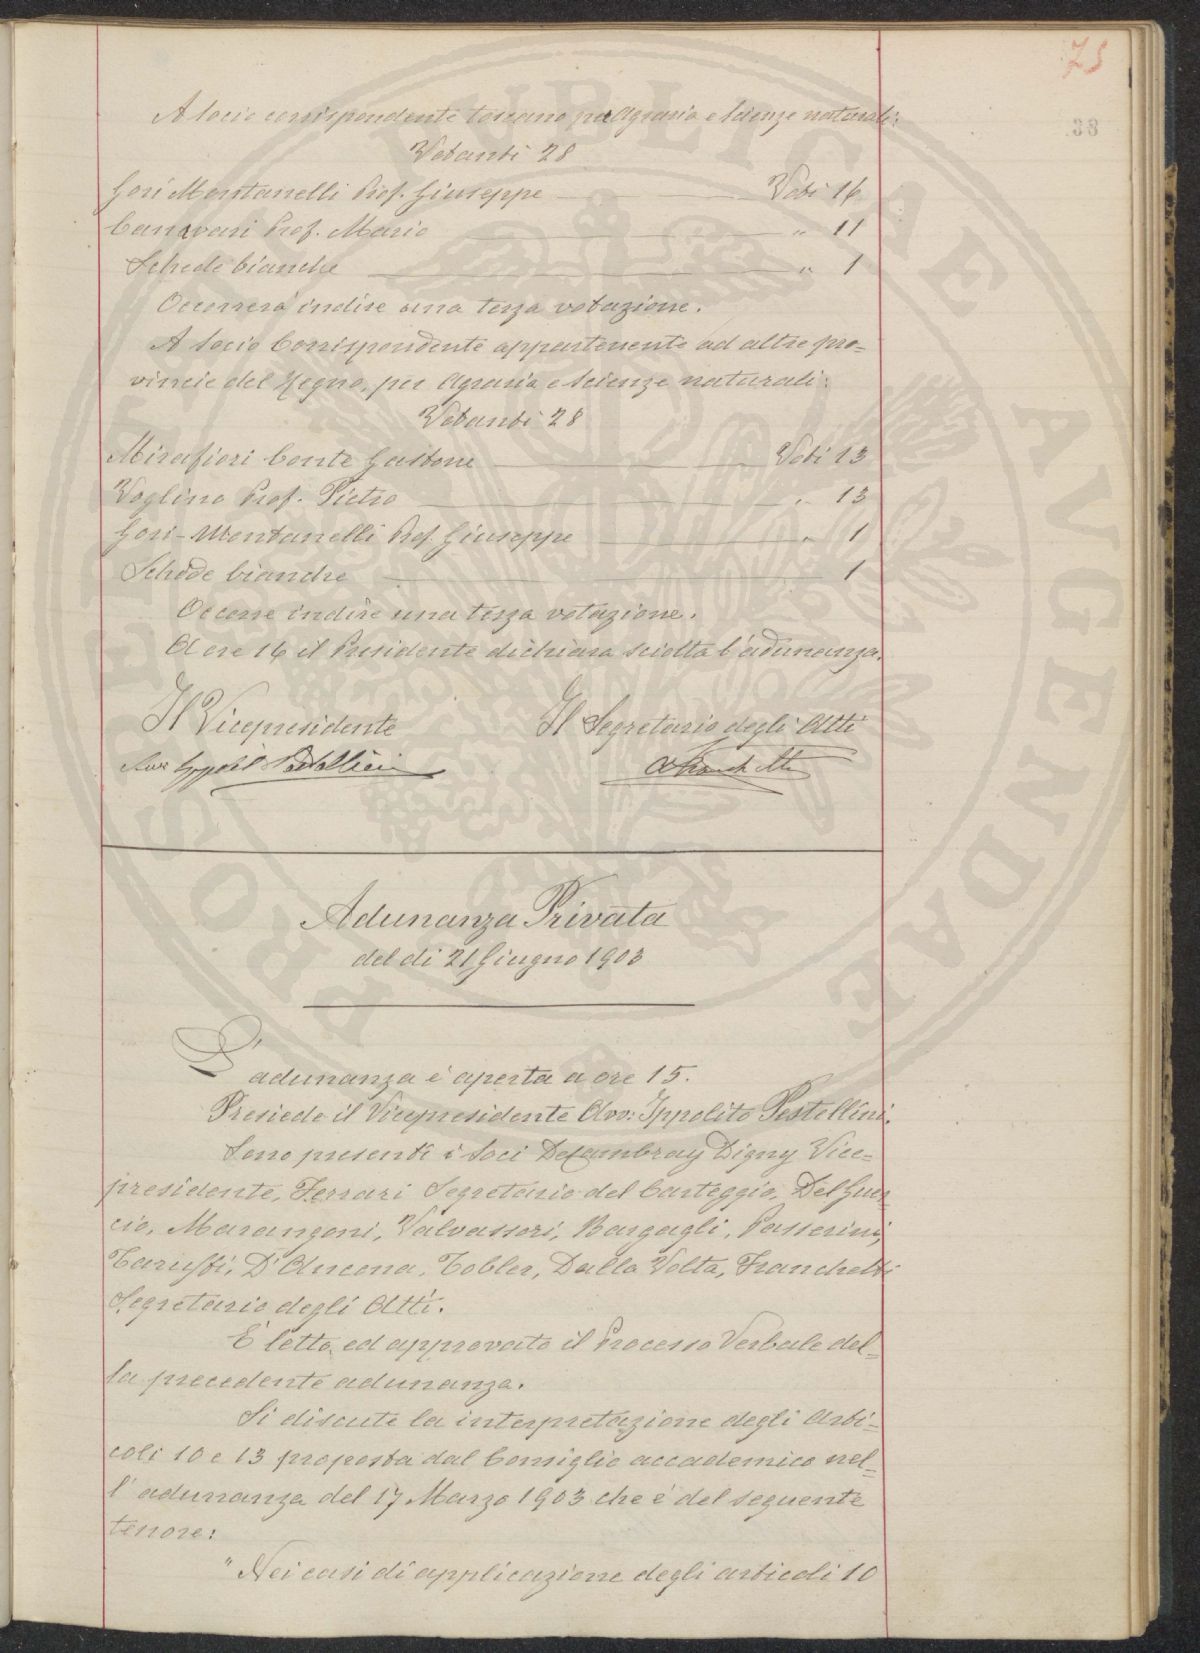 75
38
A socio corrispondente toscano per Agraria e Scienze naturali:
Votanti 28
Gori Montanelli Prof. Giuseppe Voti 16
Canavari Prof. Mario " 11
Schede bianche " 1
Occorrerà indire una terza votazione.
A socio Corrispondente appartenente ad altre pro=
vincie del Regno, per Agraria e Scienze naturali:
Votanti 28
Mirafiori Conte Gastone Voti 13
Voglino Prof. Pietro " 13
Gori-Montanelli Prof. Giuseppe " 1
Schede bianche 1
Occorre indire una terza votazione.
A ore 16 il Presidente dichiara sciolta l'adunanza.
Il Vicepresidente Il Segretario degli Atti
Pestellini A Franchetti
Adunanza Privata
del dì 21 Giugno 1903
L'adunanza è aperta a ore 15.
Presiede il Vicepresidente Avv: Ippolito Pestellini.
Sono presenti i Soci De Cambray Digny Vice=
presidente, Ferrari Segretario del Carteggio, Del Guer
cio, Marangoni, Valvassori, Bargagli, Passerini,
Taruffi, D'Ancona, Tobler, Dalla Volta, Franchetti
Segretario degli Atti.
È letto ed approvato il Processo Verbale del=
la precedente adunanza.
Si discute la interpretazione degli Arti=
coli 10 e 13 proposta dal Consiglio accademico nel=
l'adunanza del 17 Marzo 1903 che è del seguente
tenore:
"Nei casi di applicazione degli articoli 10
SOCIETAS
PUBLICAE AVGENDAE
PROS